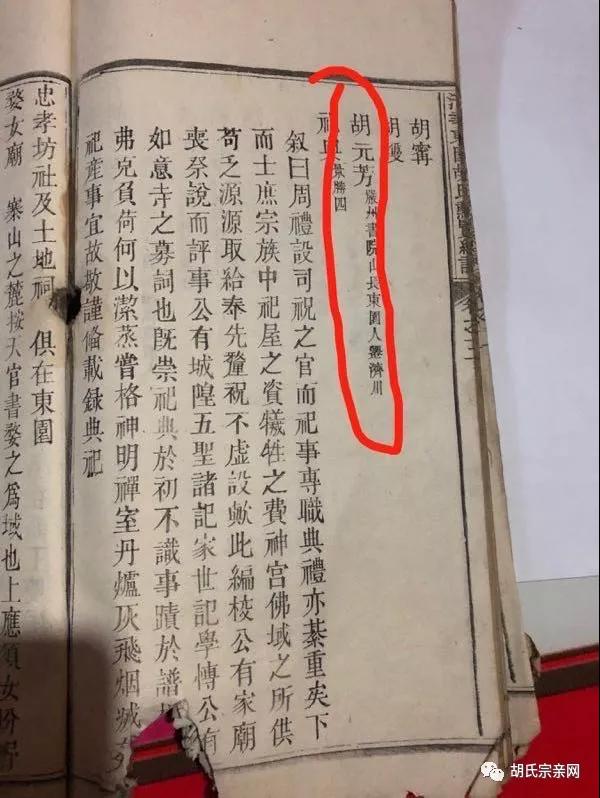 清華東園胡氏勳賢總譜
胡甯
胡
胡元芳 嚴州書院山長東園人遷濟川
祀典 景勝四
叙曰周禮設司祝之官而祀事專職典禮亦綦重矣下
而士庶宗族中祀屋之資犧牲之費神宮佛域之所供
苟乏源源取給奉先釐祝不虛設歟此編梭公有家廟
喪祭說而評事公有城隍五聖諸記家世記學博公有
如意寺之募詞也旣崇祀典於初不識事蹟於譜
弗克負荷何以潔蒸嘗格神明禪室丹爐灰飛烟滅
祀產事宜故敬謹備載録典祀
忠孝坊社及土地祠 俱在東園
婺女廟 寨山之麓按天官書婺之爲域也上應須女
胡氏宗亲网